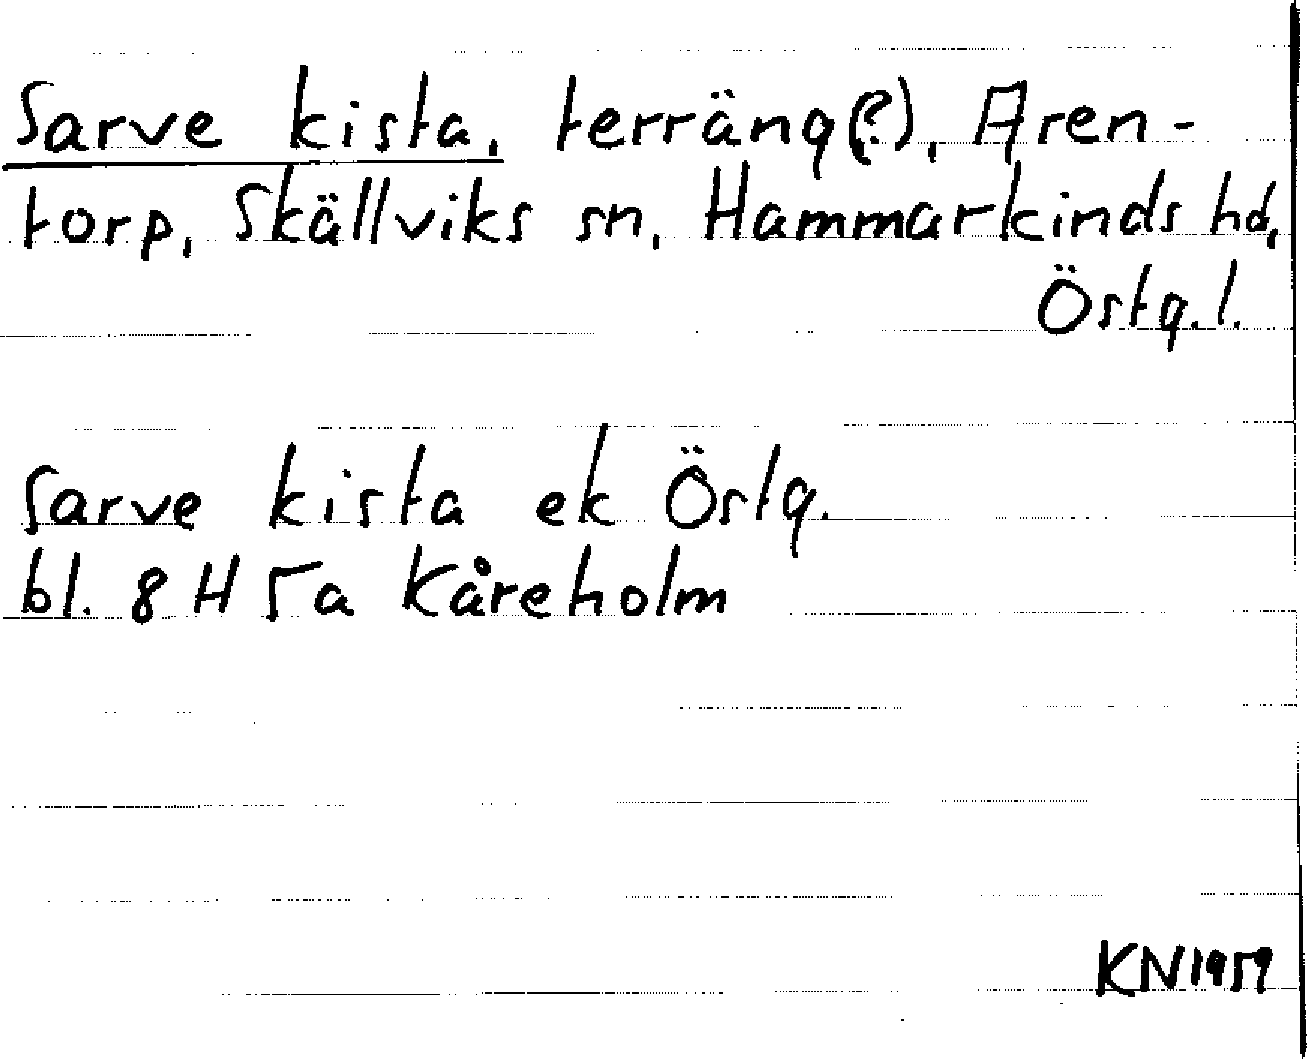 Sarve kista, terräng(?), Aren-
torp, Skällviks sn, Hammarkinds hd,
Östg.l.
Sarve kista ek Östg.
bl. 8 H 5a Kåreholm
KN1959